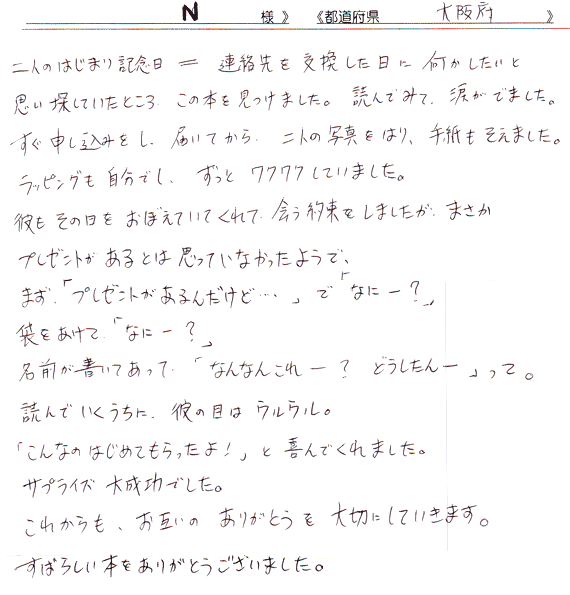 N 様》 《都道府県 大阪府 》
二人のはじまり記念日 = 連絡先を交換した日に何かしたいと
思い探していたところ、この本を見つけました。読んでみて、涙がでました。
すぐ申し込みをし、届いてから、二人の写真をはり、手紙もそえました。
ラッピングも自分でし、ずっとワクワクしていました。
彼もその日をおぼえていてくれて、会う約束をしましたが、まさか
プレゼントがあるとは思っていなかったようで、
まず、「プレゼントがあるんだけど…」で「なにー?」
袋をあけて、「なにー?」
名前が書いてあって、「なんなんこれー? どうしたんー」って。
読んでいくうちに、彼の目はウルウル。
「こんなのはじめてもらったよ!」と喜んでくれました。
サプライズ大成功でした。
これからも、お互いのありがとうを大切にしていきます。
すばらしい本をありがとうございました。